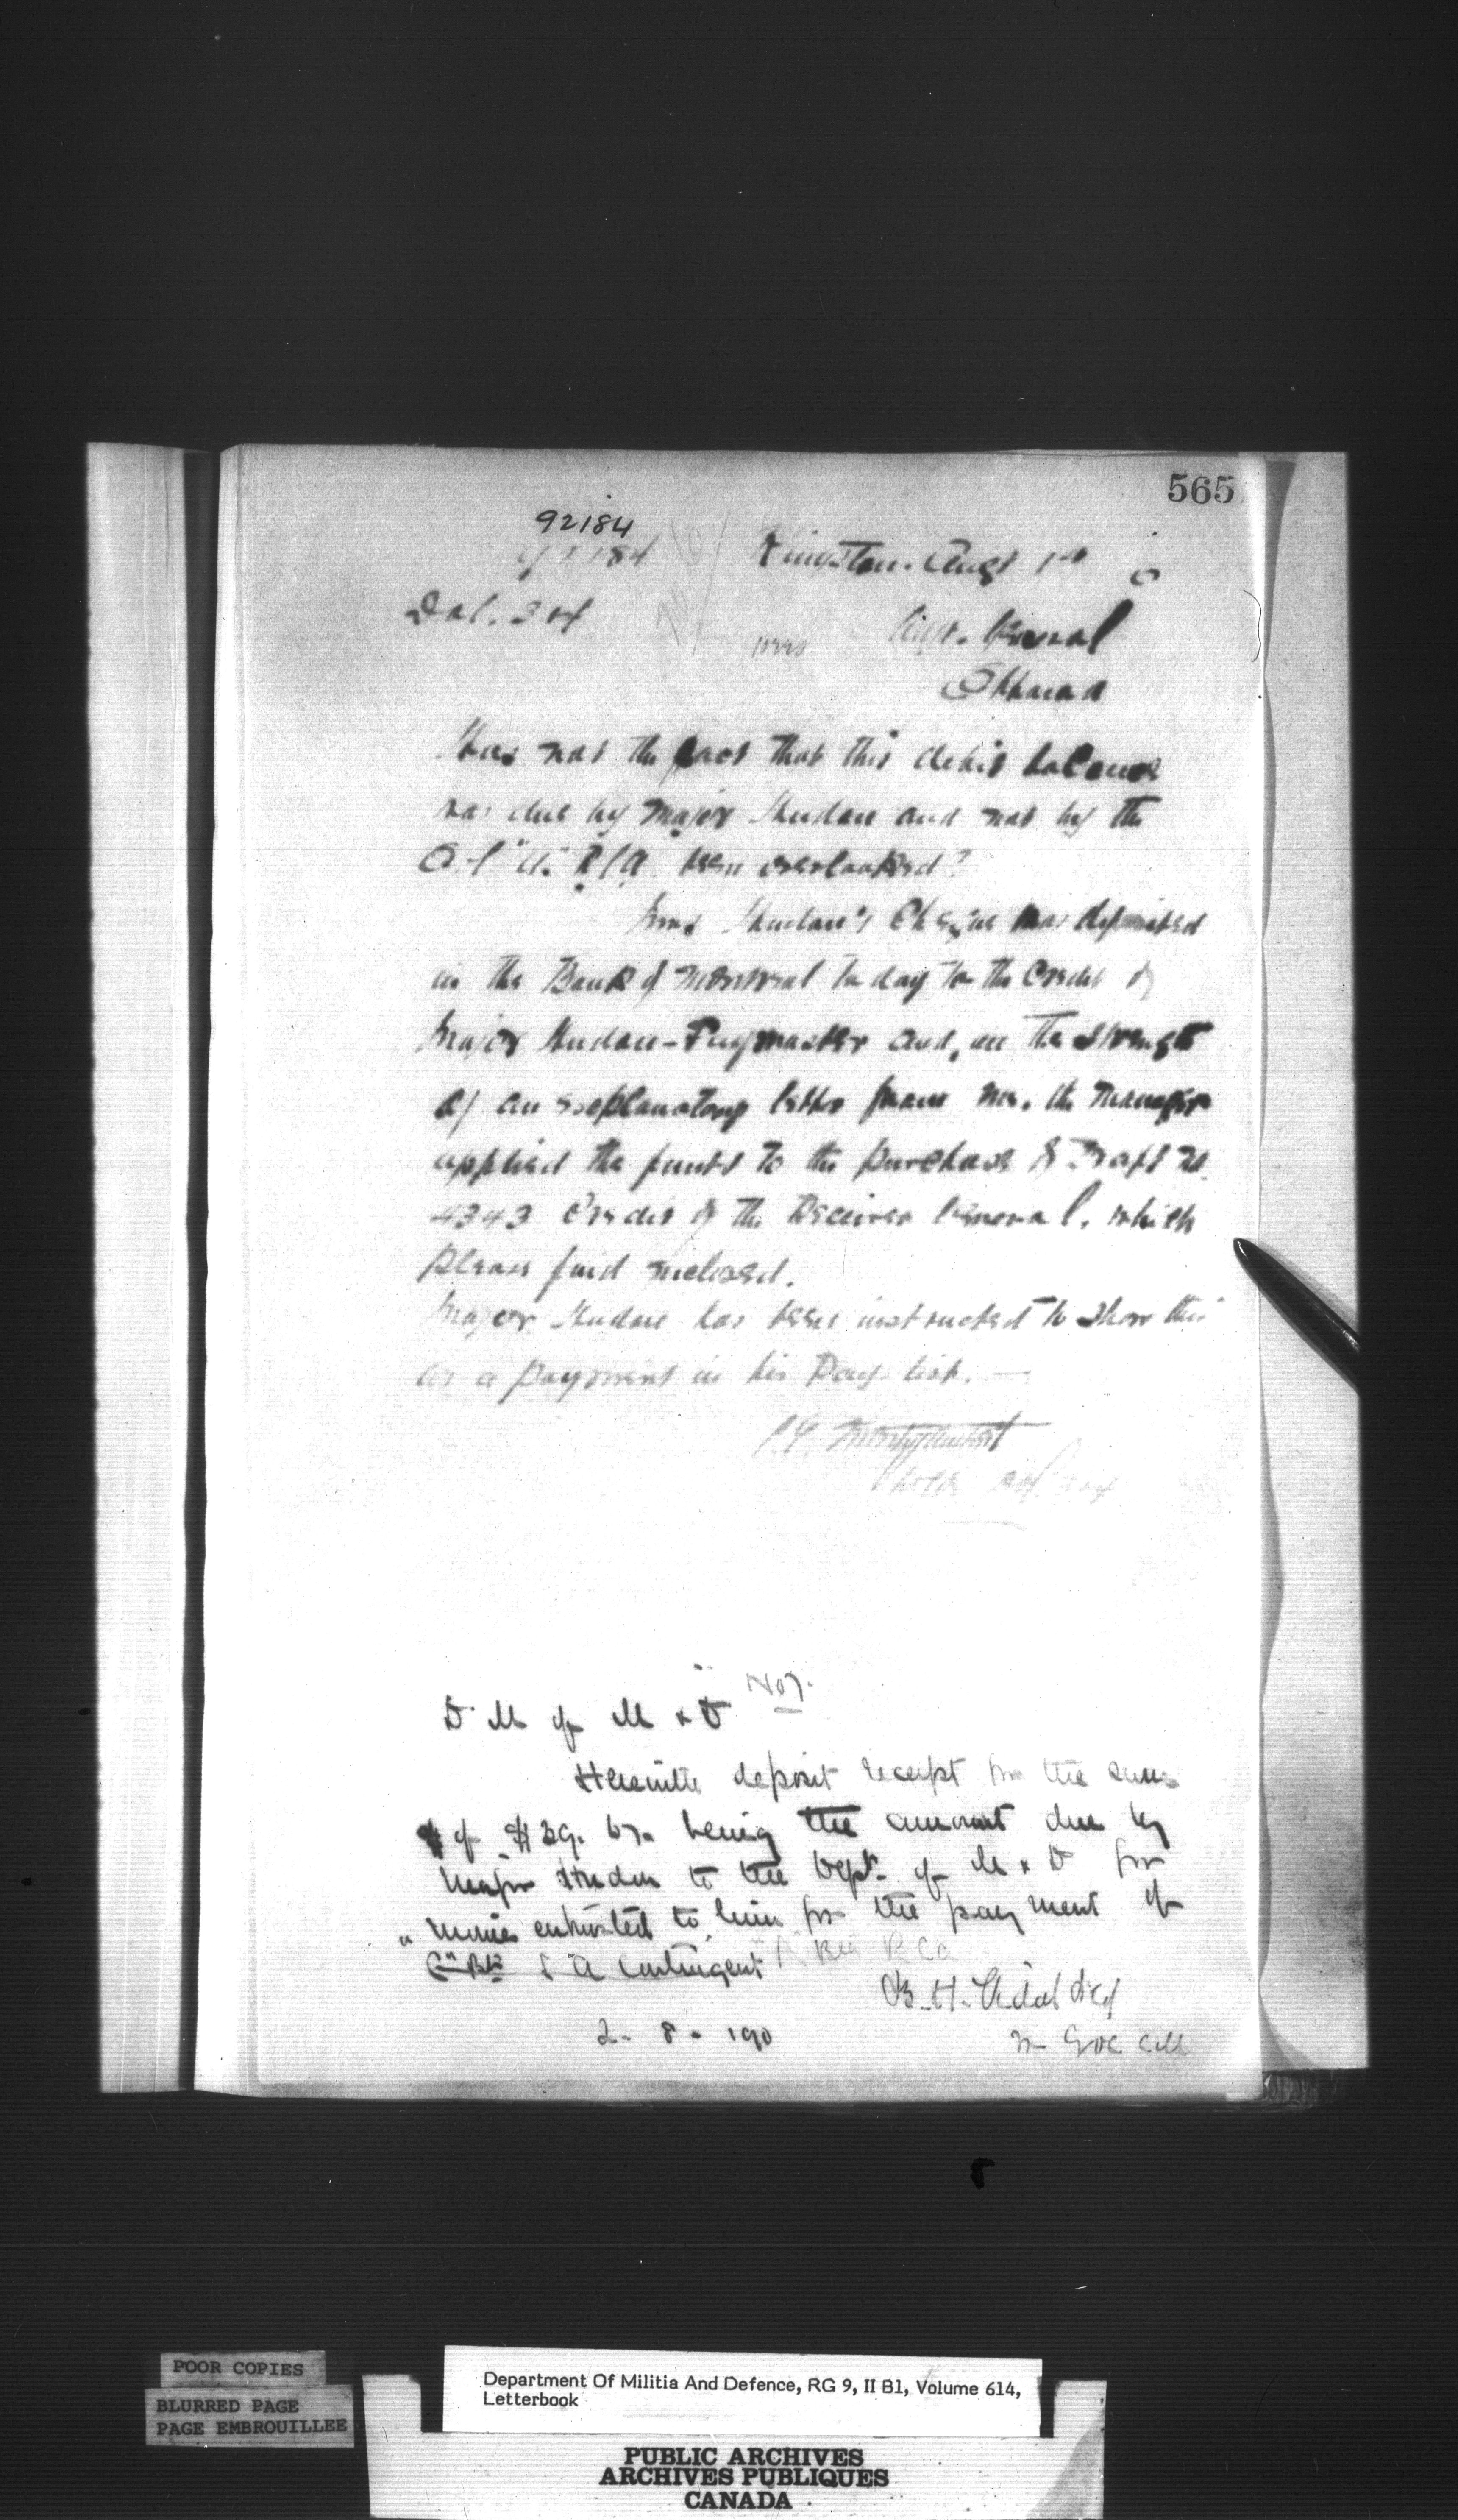 565
92184
92184
Kingston. Augt 1st
Dist. 3 & 4
General
Ottawa
Has not the fact that this debit balance
was due by Major Hudon and not by the
O.C. "A" R.C.A. been overlooked?
Hudon's Cheque was deposited
in the Bank of Montreal to day to the Credit of
Major Hudon - Paymaster and, on the strength
of an explanatory letter from me, the Manager
applied the funds to the purchase of Draft No.
4343 Credit of the Receiver General, which
please find enclosed.
Major Hudon has been instructed to show this
as a payment in his Pay-list. —
D M of M & D No 7.
Herewith deposit receipt for the sum
of $ 29. being the amount due by
Major Hudon to the Dept. of M & D for
entrusted to him for the payment of
"C" Bty S A Contingent "A" Bty RCA
B. H. Vidal
GOC
2 - 8 - 190
POOR COPIES
BLURRED PAGE
PAGE EMBROUILLEE
Department Of Militia And Defence, RG 9, II B1, Volume 614,
Letterbook
PUBLIC ARCHIVES
ARCHIVES PUBLIQUES
CANADA